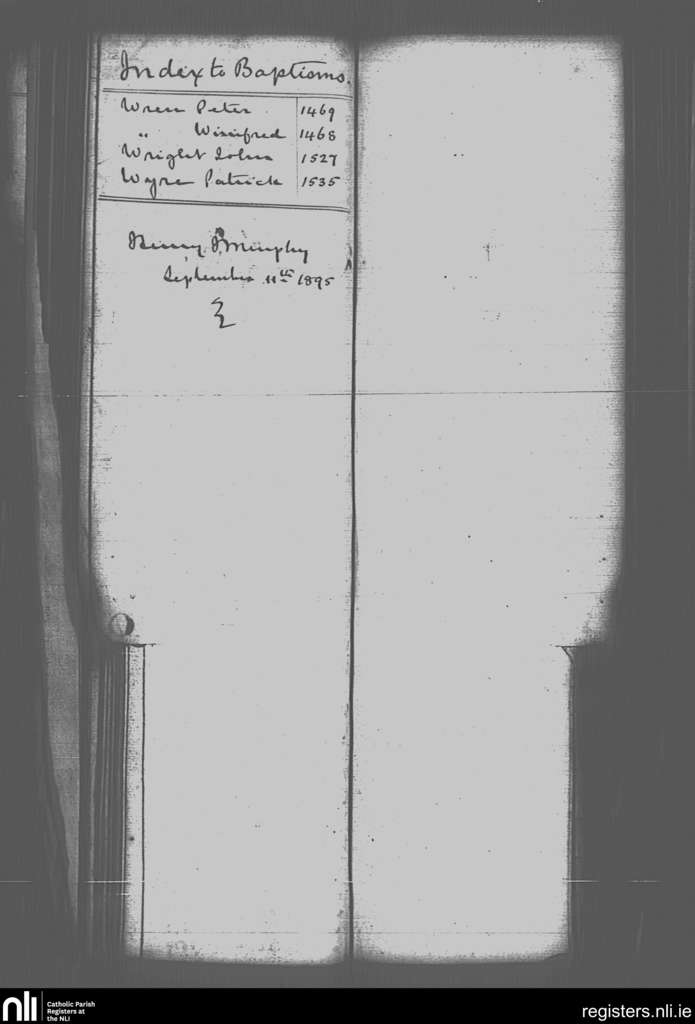 Index to Baptisms.
Wren Peter 1469
" Winifred 1468
Wright John 1527
Wyre Patrick 1535
Henry J Murphy
September 11th 1895
nli
Catholic Parish
Registers at
the NLI
registers.nli.ie